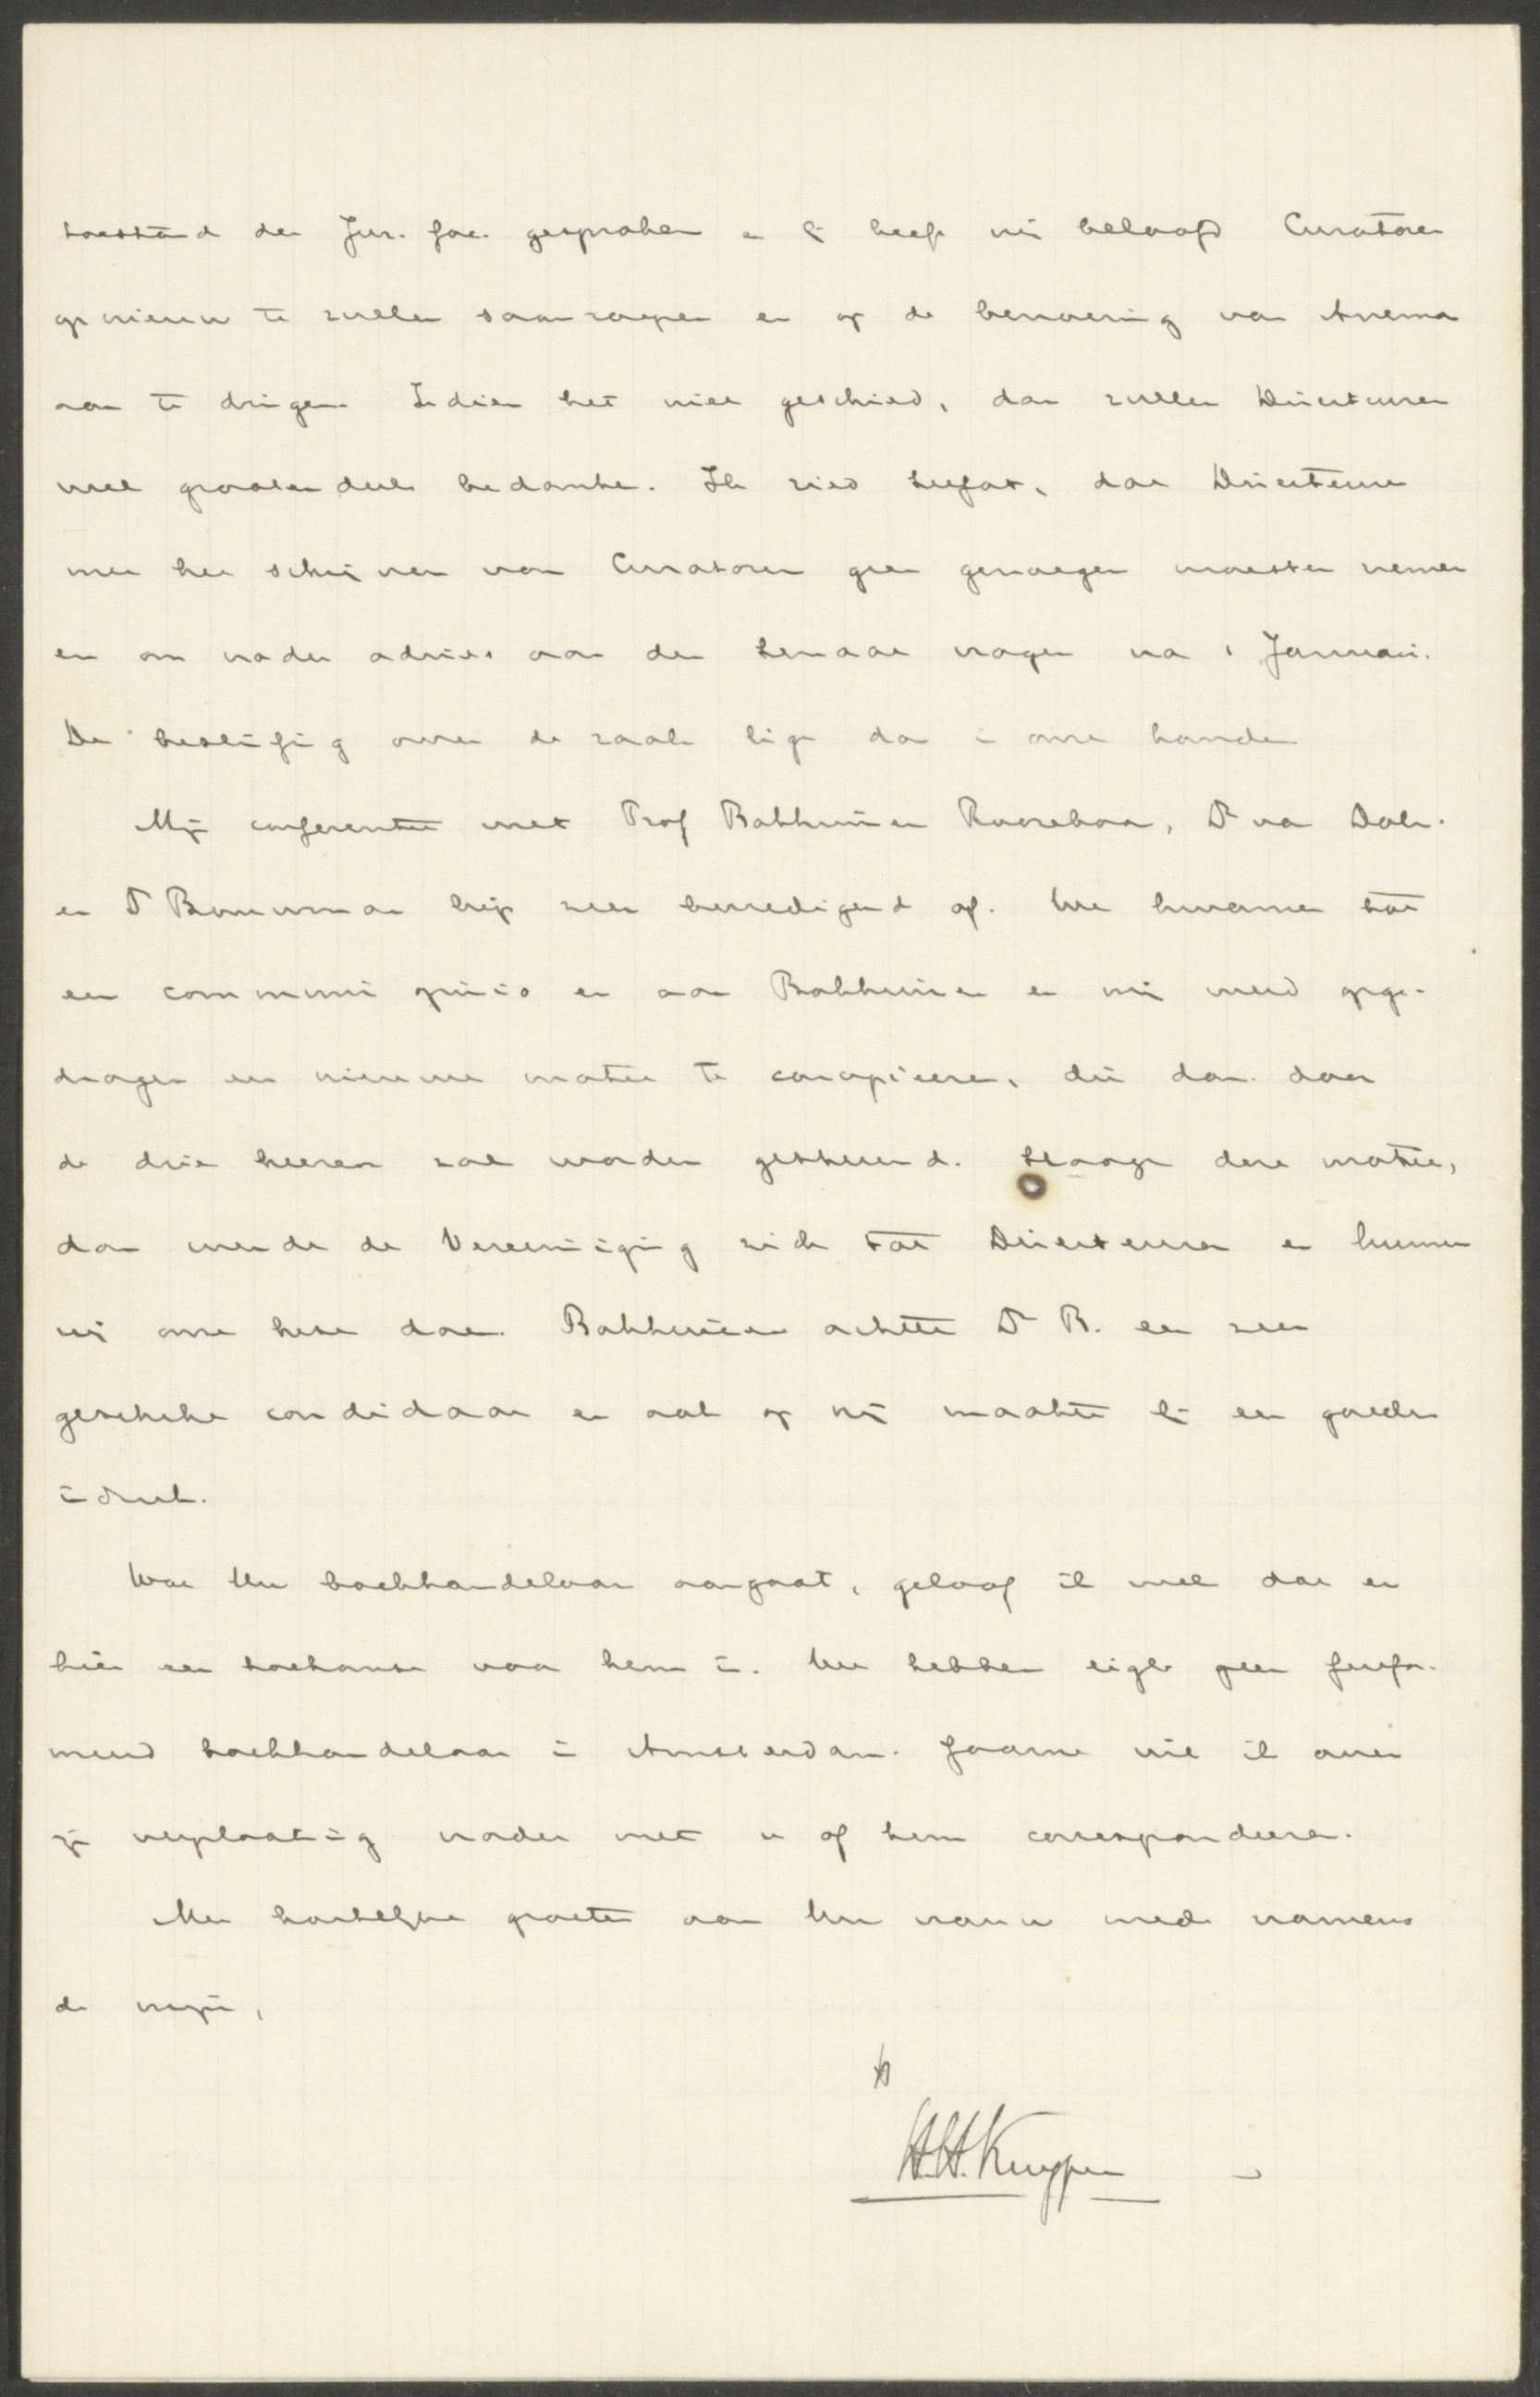 toestand der Jur. fac. gesproken en hij heeft mij beloofd Curatoren
opnieuw te zullen saamroepen en op de benoeming van Anema
aan te dringen. Indien het niet geschied, dan zullen Directeuren
wel grootendeels bedanken. Ik ried Seefat, dat Directeuren
met het schrijven van Curatoren geen genoegen moesten nemen
en om nader advies aan den Senaat vragen na 1 Januari.
De beslissing over de zaak ligt dan in onze handen
Mijn conferentie met Prof Bakhuizen Roozeboom, Dr van
en Dr Bouwman liep zeer bevredigend af. We kwamen tot
een communis opinio en aan Bakhuizen en mij werd opge-
dragen een nieuwe motie te concipieeren, die dan door
de drie heeren zal worden gesteund. Slaagt deze motie,
dan wende de Vereeniging zich tot Directeuren en kunnen
wij onze keze doen. Bakhuizen achtte Dr B. een zeer
geschikte candidaat en ook op mij maakte hij een goeden
indruk.
Wat Uw boekhandelaar aangaat, geloof ik wel dat er
hier een toekomst voor hem is. We hebben eigl. geen gerefor-
meerd boekhandelaar in Amsterdam. Gaarne wil ik over
zijn verplaatsing nader met u of hem correspondeeren.
Met hartelijke groeten aan Uw vrouw mede namens
de mijne,
H.H. Kuyper